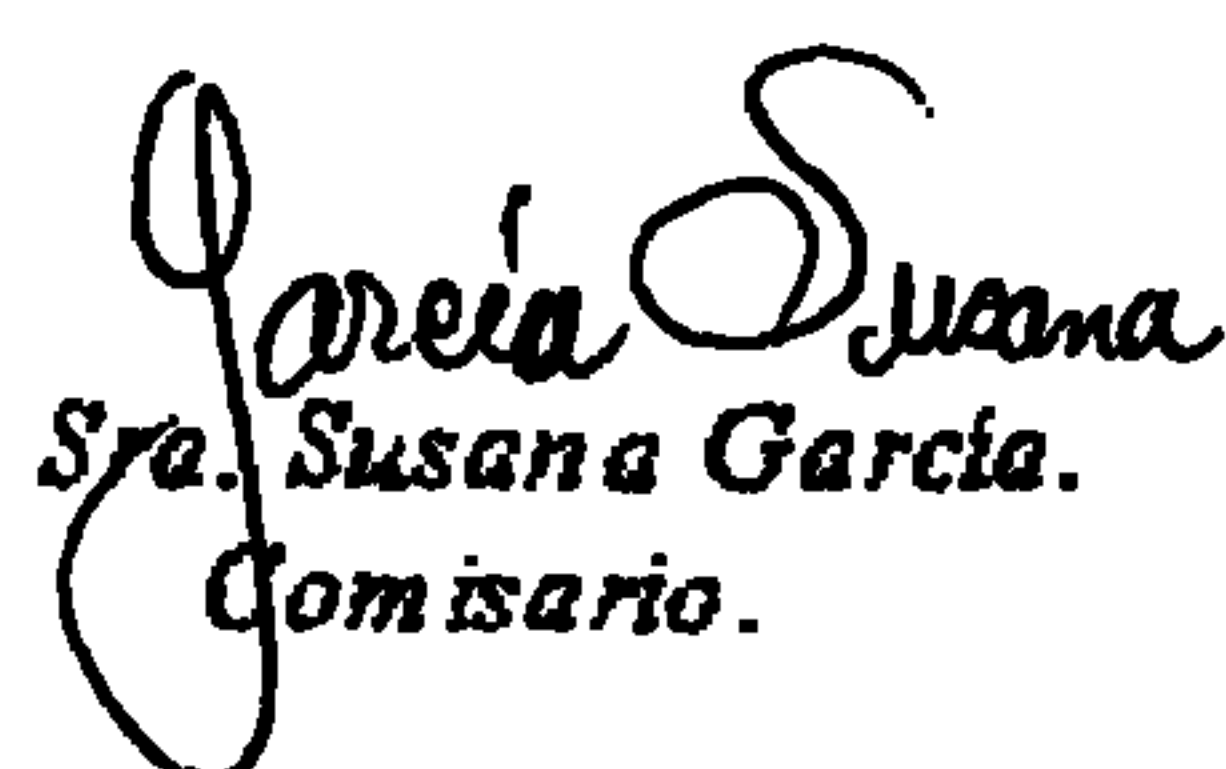 García Susana
Sra. Susana García.
Comisario.